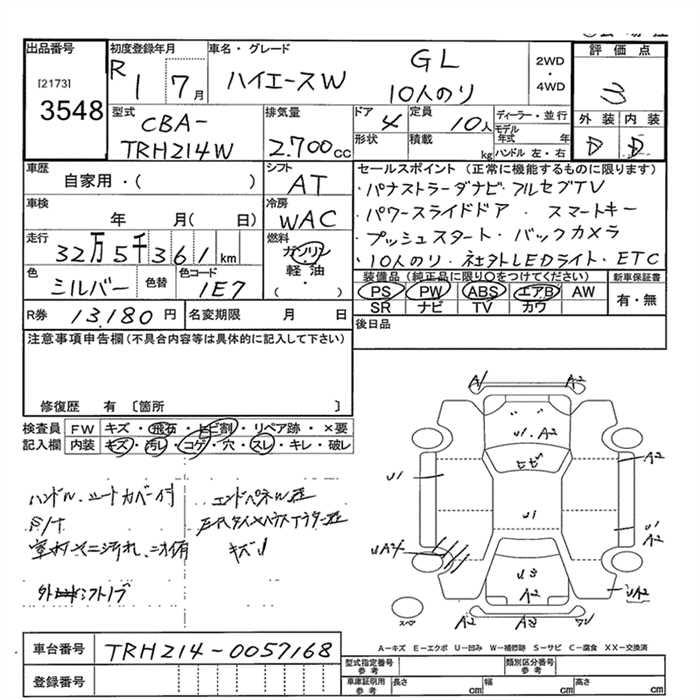 出品番号
[2173]
3548
初度登録年月
R1 7月
車名・グレード
ハイエースW
GL
10人のり
2WD
・
4WD
評価点
3
外装 内装
D D
型式
CBA-
TRH214W
排気量
2.700cc
ドア
4
定員
10人
形状
積載
kg
ディーラー・並行
モデル
年式 年
ハンドル 左・右
車歴
自家用・( )
シフト
AT
車検
年 月( 日)
冷房
WAC
走行
32万5千361km
燃料
ガソリン
軽油
・
( )
色
シルバー
色替
色コード
1E7
R券 13,180円
名変期限 月 日
セールスポイント (正常に機能するものに限ります)
・パナストラーダナビ・フルセグTV
・パワースライドドア・スマートキー
・プッシュスタート・バックカメラ
・10人のり・社外LEDライト・ETC
装備品 (純正品に限り〇をつけてください)
PS PW ABS エアB AW
SR ナビ TV カワ
新車保証書
有・無
後日品
注意事項申告欄 (不具合内容等は具体的に記入して下さい)
修復歴 有 〔箇所 〕
検査員
記入欄
FW キズ・飛石・トビ割・リペア跡・×要
内装 キズ・汚レ・コゲ・穴・スレ・キレ・破レ
ハンドル、シートカバー付
S/T
室内ヤニ汚れ、ニオイ有
外シフトノブ
エンドパネルW歪
キズU
A1 A2
U1.A2
ヒビ
U1
U1
A2
U1
A2
UA2
U3
A2
UA2
A2 A2 W2
スペア
A-キズ E-エクボ U-凹み W-補修跡 S-サビ C-腐食 XX-交換済
車台番号
TRH214-0057168
登録番号
型式指定番号
参考
類別区分番号
参考
車庫証明用
参考
長さ cm 幅 cm 高さ cm